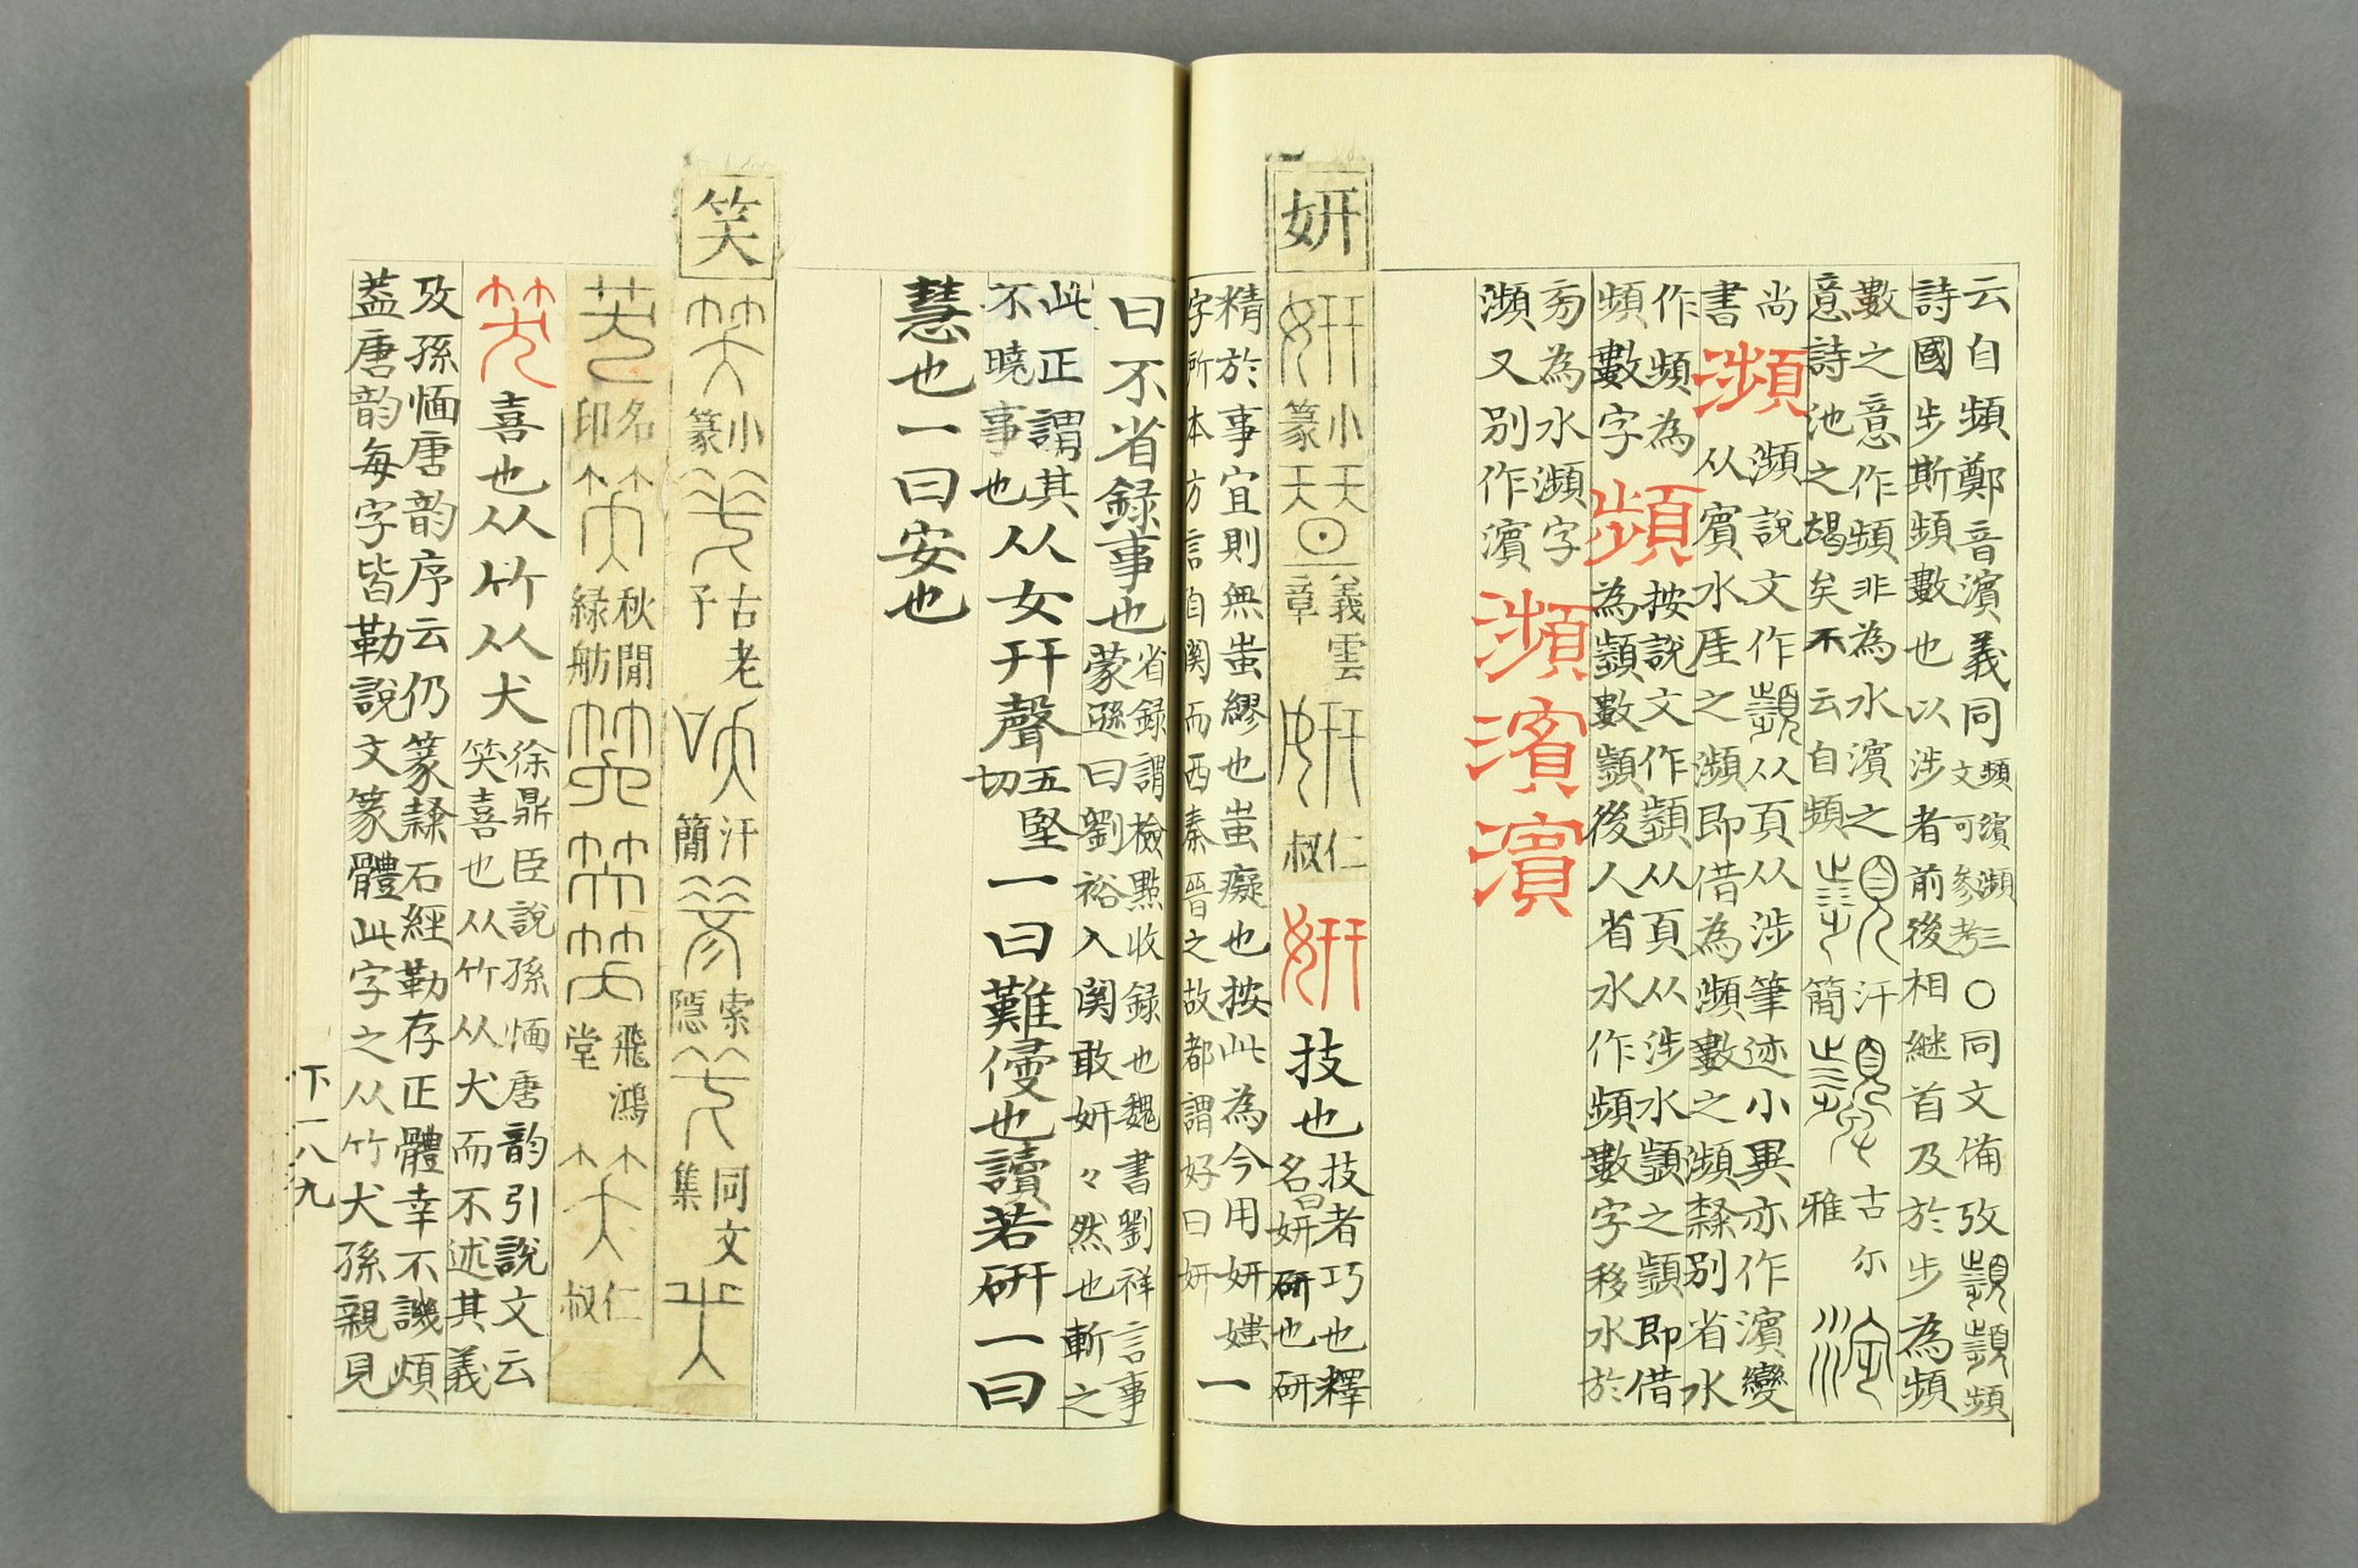 云自頻鄭音濱義同頻濱瀕三文可參考〇同文備攷頻
詩國步斯頻數也以涉者前後相継首及於步為頻
數之意作頻非為水濱之汗古尓
意詩池之竭矣不云自頻簡雅
尚瀕說文作顰从頁从涉筆迹小異亦作濱變
書瀕从賓水厓之瀕即借為瀕數之瀕隸別省水
作頻為頻按說文作顰从頁从涉水顰之顰即借
頻數字為顰數顰後人省水作頻數字移水於
㫄為水瀕字
瀕又別作濱瀕濱濱
妍
小篆天天義雲章仁叔
妍技也技者巧也釋名曰妍研也研
精於事宜則無蚩繆也蚩癡也按此為今用妍媸一
字所本方言自関而西秦晉之故都謂好曰妍
曰不省録事也省録謂檢點收録也魏書劉祥言事
蒙遜曰劉裕入関敢妍々然也斬之
此正謂其
不曉事也从女幵聲五堅切一曰難侵也讀若研一曰
慧也一曰安也
笑
小篆古老子汗簡索隱同文集
名印秋閒緑舫飛鴻堂仁叔
笑喜也从竹从犬徐鼎臣說孫愐唐韵引說文云
笑喜也从竹从犬而不述其義
及孫愐唐韵序云仍篆隸石經勒存正體幸不譏煩
葢唐韵每字皆勒說文篆體此字之从竹犬孫親見
下一八九